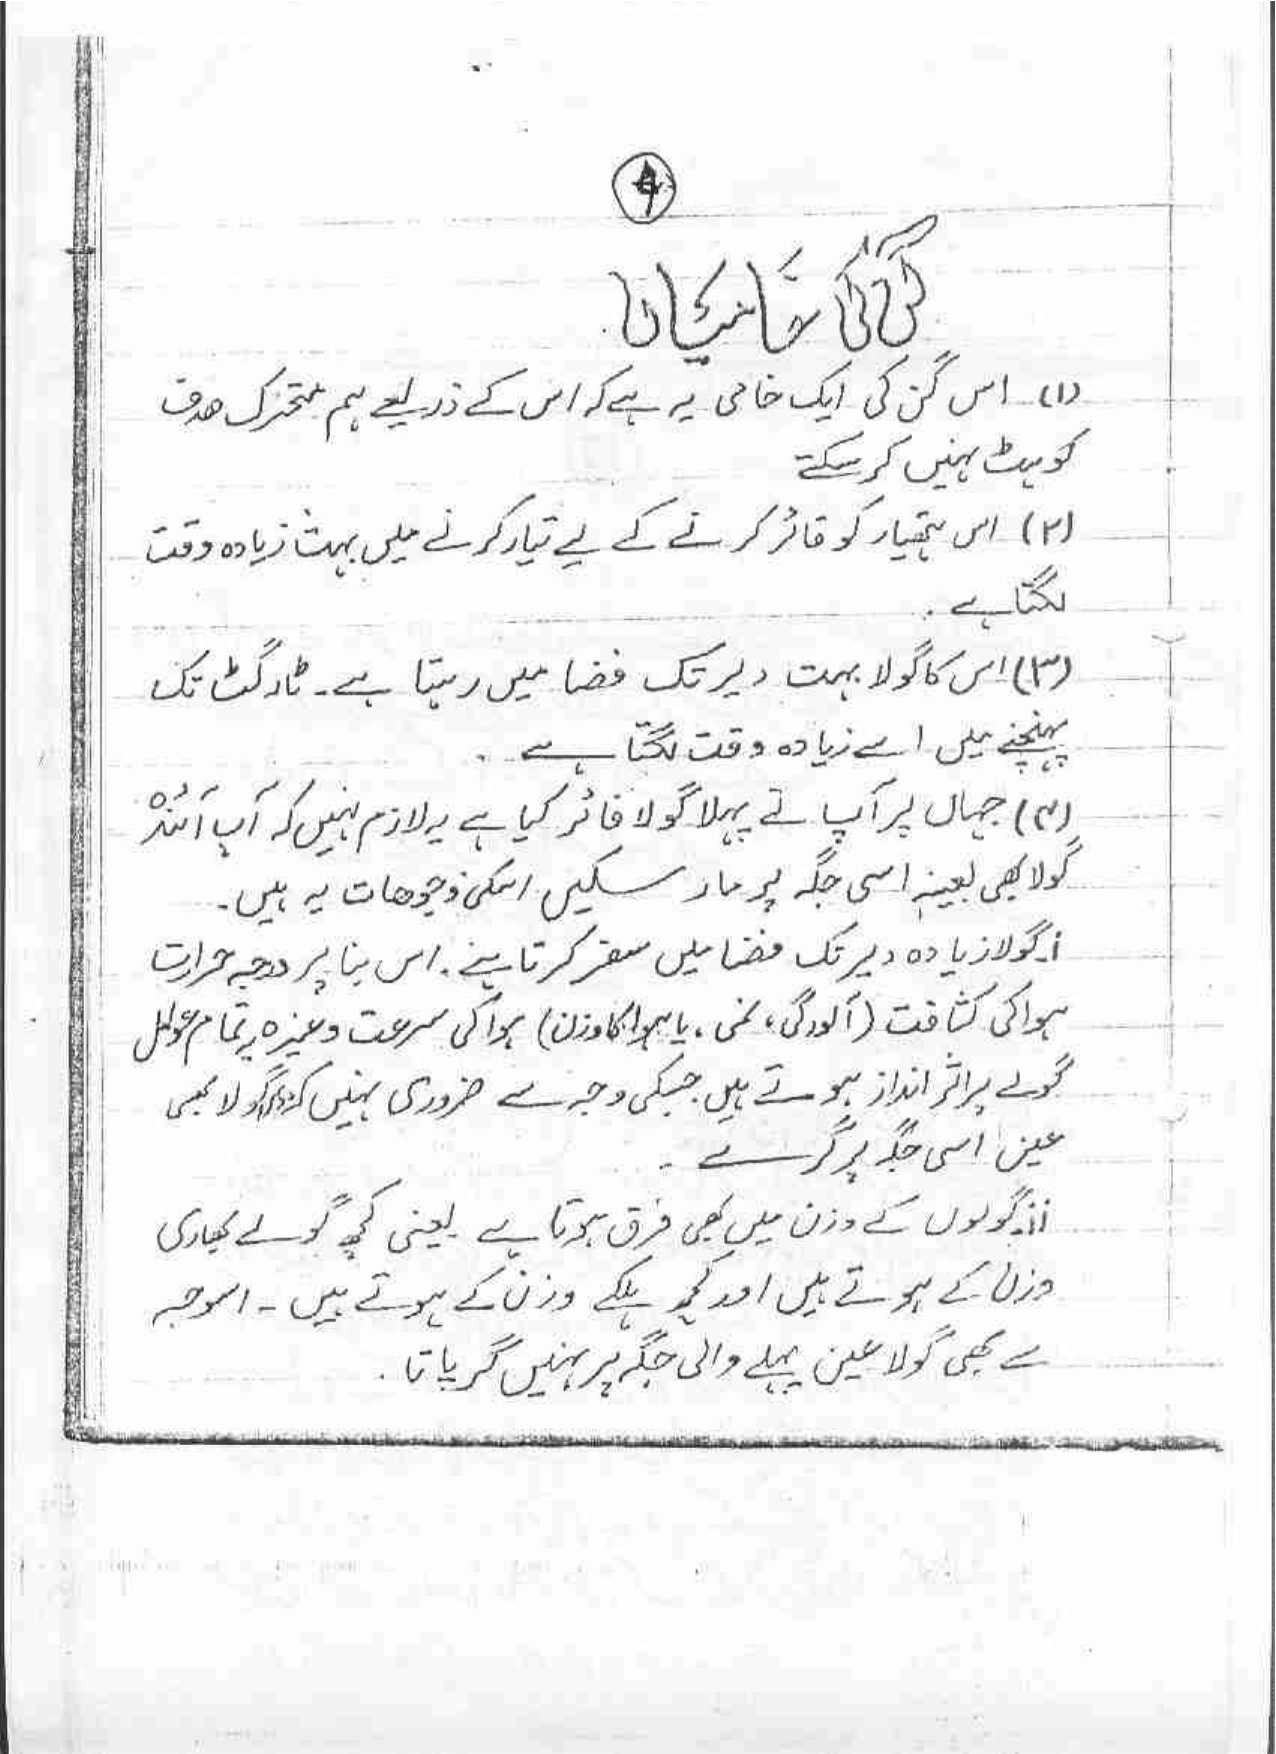 ۹
گن کی خامیاں
(۱) اس گن کی ایک خامی یہ ہے کہ اس کے ذریعے ہم متحرک ھدف
کو ہٹ نہیں کر سکتے
(۲) اس ہتھیار کو فائر کرنے کے لیے تیار کرنے میں بہت زیادہ وقت
لگتا ہے .
(۳) اس کا گولا بہت دیر تک فضا میں رہتا ہے ۔ ٹارگٹ تک
پہنچنے میں اسے زیادہ وقت لگتا ہے .
(۴) جہاں پر آپ نے پہلا گولا فائر کیا ہے یہ لازم نہیں کہ آپ آئندہ
گولا بھی بعینہٖ اسی جگہ پر مار سکیں اسکی وجوھات یہ ہیں ۔
i۔ گولا زیادہ دیر تک فضا میں سفر کرتا ہے . اس بنا پر درجہ حرارت
ہوا کی کثافت (آلودگی، نمی ، یا ہوا کا وزن) ہوا کی سرعت وغیرہ یہ تمام عوامل
گولے پر اثر انداز ہوتے ہیں جسکی وجہ سے ضروری نہیں کہ گولا بھی
عین اسی جگہ پر گرے ۔
ii۔ گولوں کے وزن میں بھی فرق ہوتا ہے ۔ یعنی کچھ گولے بھاری
وزن کے ہوتے ہیں اور کچھ ہلکے وزن کے ہوتے ہیں ۔ اسوجہ
سے بھی گولا عین پہلے والی جگہ پر نہیں گر پاتا .